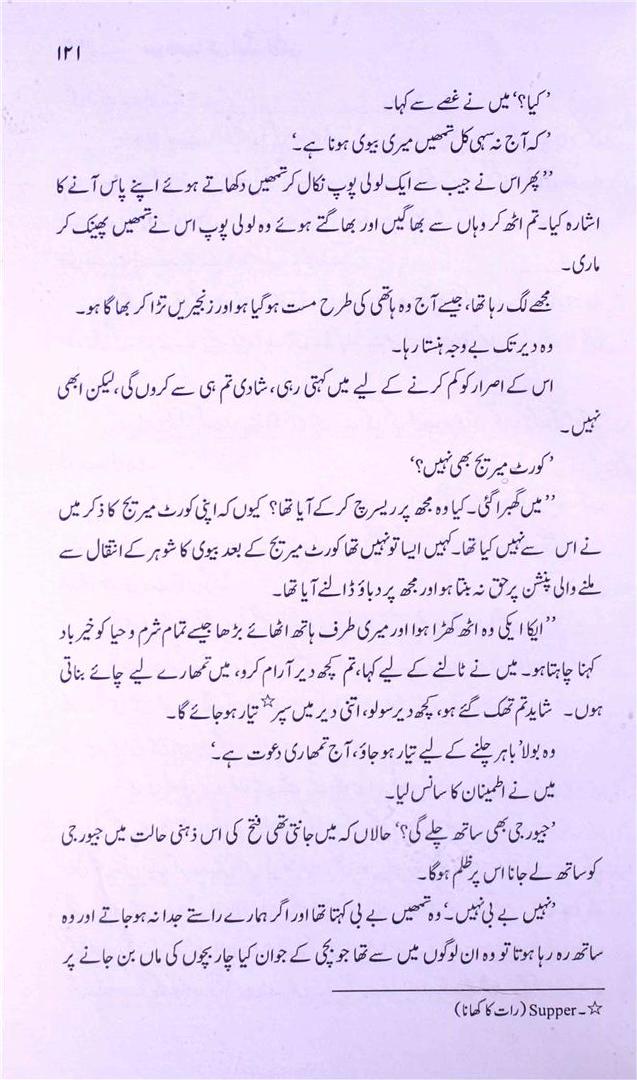 ۱۲۱
’کیا؟‘ میں نے غصے سے کہا۔
’کہ آج نہ سہی کل تمھیں میری بیوی ہونا ہے۔‘
’’پھر اس نے جیب سے ایک لولی پوپ نکال کر تمھیں دکھاتے ہوئے اپنے پاس آنے کا
اشارہ کیا۔ تم اٹھ کر وہاں سے بھاگیں اور بھاگتے ہوئے وہ لولی پوپ اس نے تمھیں پھینک کر
ماری۔
مجھے لگ رہا تھا، جیسے آج وہ ہاتھی کی طرح مست ہو گیا ہو اور زنجیریں تڑا کر بھاگا ہو۔
وہ دیر تک بے وجہ ہنستا رہا۔
اس کے اصرار کو کم کرنے کے لیے میں کہتی رہی، شادی تم ہی سے کروں گی، لیکن ابھی
نہیں۔
’کورٹ میریج بھی نہیں؟‘
’’میں گھبرا گئی۔ کیا وہ مجھ پر ریسرچ کر کے آیا تھا؟ کیوں کہ اپنی کورٹ میریج کا ذکر میں
نے اس سے نہیں کیا تھا۔ کہیں ایسا تو نہیں تھا کورٹ میریج کے بعد بیوی کا شوہر کے انتقال سے
ملنے والی پنشن پر حق نہ بنتا ہو اور مجھ پر دباؤ ڈالنے آیا تھا۔
’’ایکا ایکی وہ اٹھ کھڑا ہوا اور میری طرف ہاتھ اٹھائے بڑھا جیسے تمام شرم و حیا کو خیر باد
کہنا چاہتا ہو۔ میں نے ٹالنے کے لیے کہا، تم کچھ دیر آرام کرو، میں تمھارے لیے چائے بناتی
ہوں۔ شاید تم تھک گئے ہو، کچھ دیر سو لو، اتنی دیر میں سپر☆ تیار ہو جائے گا۔
وہ بولا ’باہر چلنے کے لیے تیار ہو جاؤ، آج تمھاری دعوت ہے۔‘
میں نے اطمینان کا سانس لیا۔
’جیورجی بھی ساتھ چلے گی؟‘ حالاں کہ میں جانتی تھی فتح کی اس ذہنی حالت میں جیورجی
کو ساتھ لے جانا اس پر ظلم ہو گا۔
’نہیں بے بی نہیں۔‘ وہ تمھیں بے بی کہتا تھا اور اگر ہمارے راستے جدا نہ ہو جاتے اور وہ
ساتھ رہ رہا ہوتا تو وہ ان لوگوں میں سے تھا جو بچی کے جوان کیا چار بچوں کی ماں بن جانے پر
☆۔ Supper (رات کا کھانا)